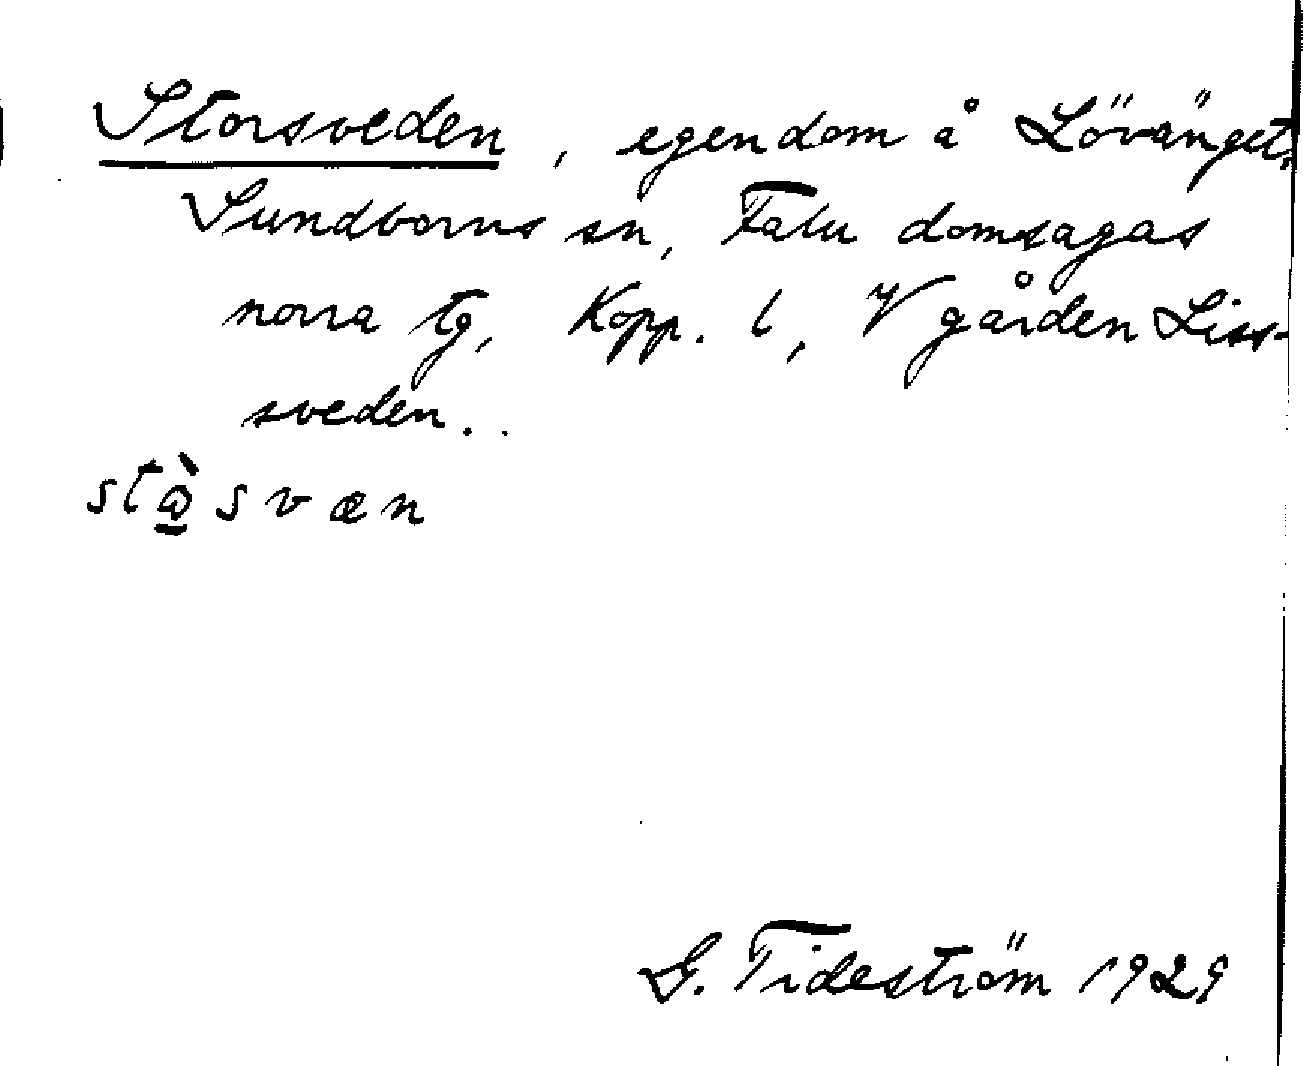 Storsveden, egendom å Lövänget,
Sundborns sn, Falu domsagas
norra tg, Kopp. l, V gården Liss-
sveden.
G. Tideström 1929